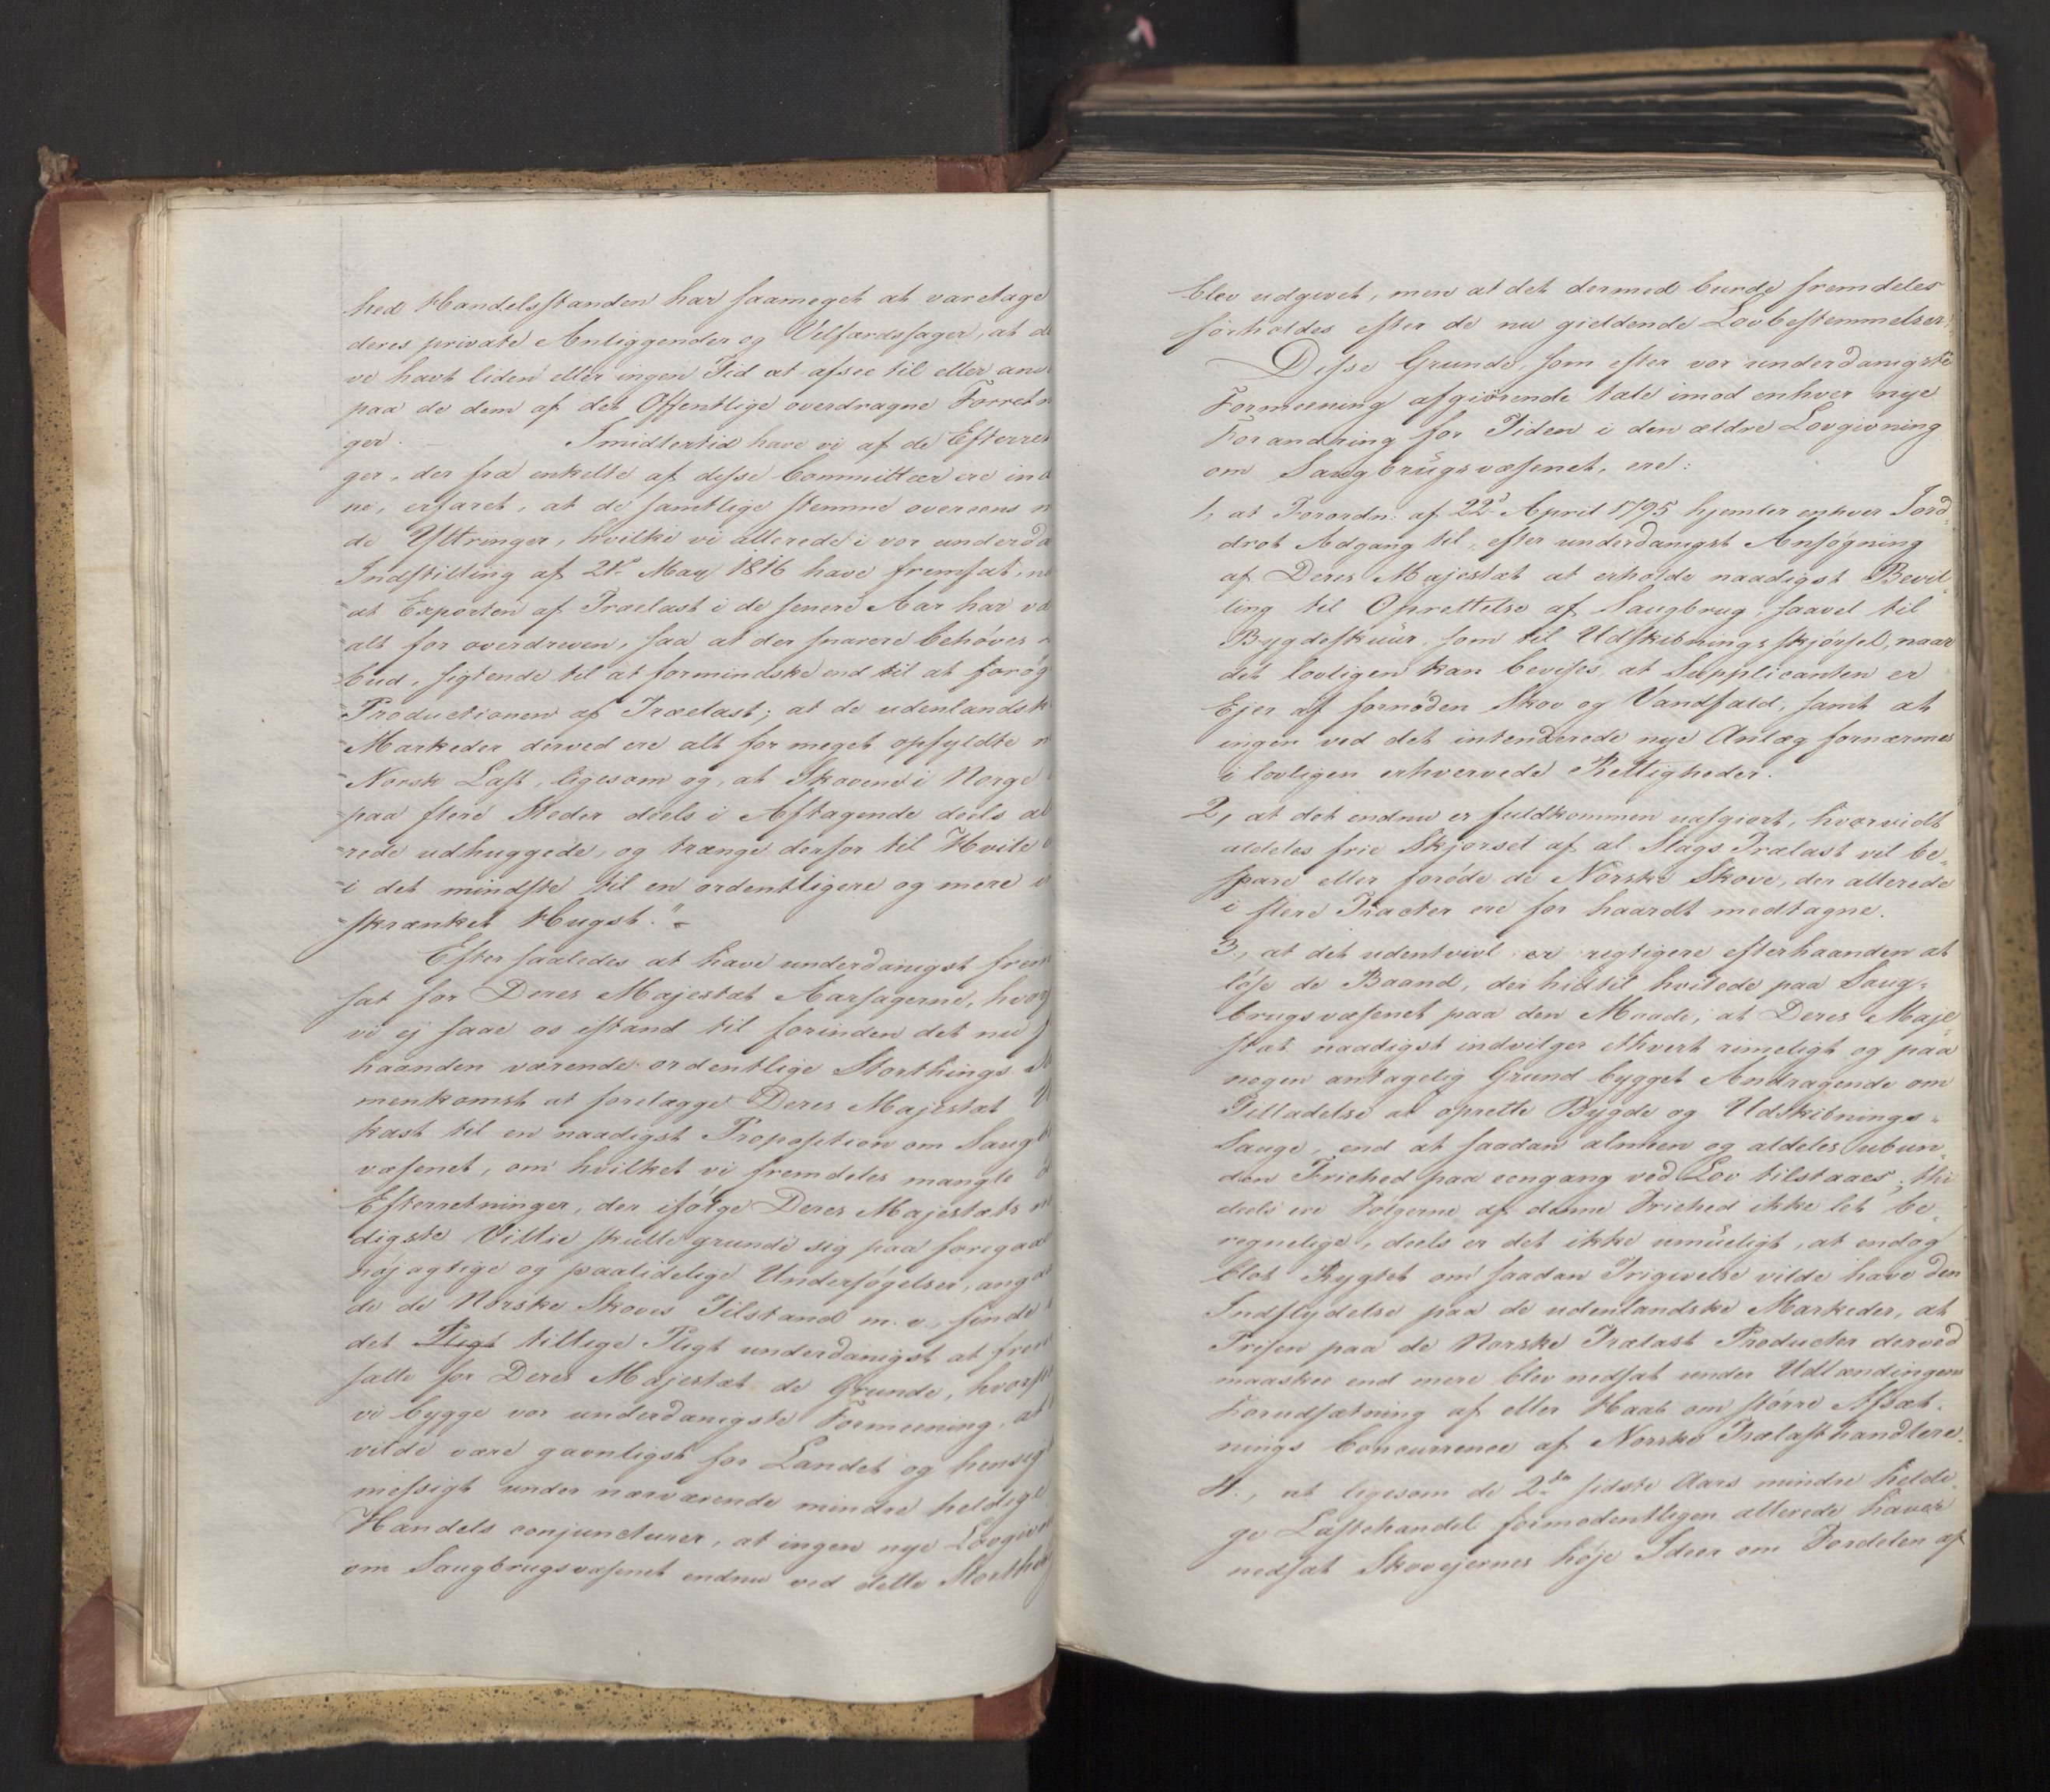 hed Handelsstanden har saameget at varetage
deres private Anliggender og Velfærdssager, at d
ve havt liden eller ingen Tid at afsee til eller anv
paa de dem af det Offentlige overdragne Forretn
ger. Imidlertid have vi af de Efterret
ger, der fra enkelte af disse Committeer ere ind
ne, erfaret, at de samtlige stemme overeens m
de Yttringer, hvilke vi allerede i vor underda
Indstilling af 21d May 1816 have fremsat, ne
"at Exporten af Trælast i de senere Aar har væ
"alt for overdreven, saa at der snarere behøves
"bud, sigtende til at formindske end til at forøg
"Productionen af Trælast; at de udenlandsk
"Markeder derved ere alt for meget opfyldte m
"Norsk Last, ligesom og, at Skovene i Norge
"paa flere Steder deels i Aftagende deels al
"rede udhuggede, og trænge derfor til Hvile
"i det mindste til en ordentligere og mere i
"skrænket Hugst."
Efter saaledes at have underdanigst frem
sat for Deres Majestæt Aarsagerne, hvor
vi ej saae os istand til forinden det nu f
haanden værende ordentlige Storthings S
menkomst at forelægge Deres Majestæt U
kast til en naadigst Proposition om Saug
væsenet, om hvilket vi fremdeles mangle
Efterretninger, der ifølge Deres Majestæts n
digste Villie skulle grunde sig paa foregaae
nøjagtige og paalidelige Undersøgelser, ang
de de Norske Skoves Tilstand m. v., finde
det Pligt tillige Pligt underdanigst at frem
sætte for Deres Majestæt de Grunde, hvorp
vi bygge vor underdanigste Formeening, at
vilde være gavnligst for Landet og hensig
messigt under nærværende mindre heldige
Handels conjuncturer, at ingen nye Lovgivn
om Saugbrugsvæsenet endnu ved dette Storth
blev udgivet, men at det dermed burde fremdeles
forholdes efter de nu gieldende Lovbestemmelser.
Disse Grunde, som efter vor underdanigste
Formeening afgiörende tale imod enhver nye
Forandring for Tiden i den ældre Lovgivning
om Saugbrügsvæsenet, ere:
1, at Forordn: af 22d April 1795 hjemler enhver Jord-
drot Adgang til, efter underdanigst Ansøgning
af Deres Majestæt at erholde naadigst Bevil-
ling til Oprettelse af Saugbrug, saavel til
Bygdeskuur, som til Udskibnings skjørsel, naar
det lovligen kan bevises, at Supplicanten er
Ejer af fornøden Skov og Vandfald, samt at
ingen ved det intenderede nye Anlæg fornærmes
i lovligen erhvervede Rettigheder.
2, at det endnu er fuldkommen uafgiort, hvorvidt
aldeles frie Skjørsel af al Slags Trælast vil be-
spare eller forøde de Norske Skove, der allerede
i flere Tracter ere for haardt medtagne.
3, at det udentvivl er rigtigere efterhaanden at
løse de Baand, der hidtil hvilede paa Saug-
brugsvæsenet paa den Maade, at Deres Maje-
stæt naadigst indvilger ethvert rimeligt og paa
nogen antagelig Grund bygget Andragende om
Tilladelse at oprette Bygde og Udskibnings-
Sauge, end at saadan almeen og aldeles ubun-
den Friehed paa eengang ved Lov tilstaaes, thi
deels ere Følgerne af denne Friehed ikke let be-
regnelige, deels er det ikke umüeligt, at endog
blot Rygtet om saadan Frigivelse vilde have den
Indflydelse paa de udenlandske Markeder, at
Prisen paa de Norske Trælast Producter derved
maaskee end mere blev nedsat under Udlændingens
Forudsætning af eller Haab om større Afsæt-
nings Concurrence af Norske Trælasthandlere.
4., at ligesom de 2de sidste Aars mindre heldi-
ge Lastehandel formodentligen allerede haver
nedsat Skovejernes høje Ideer om Fordelen af